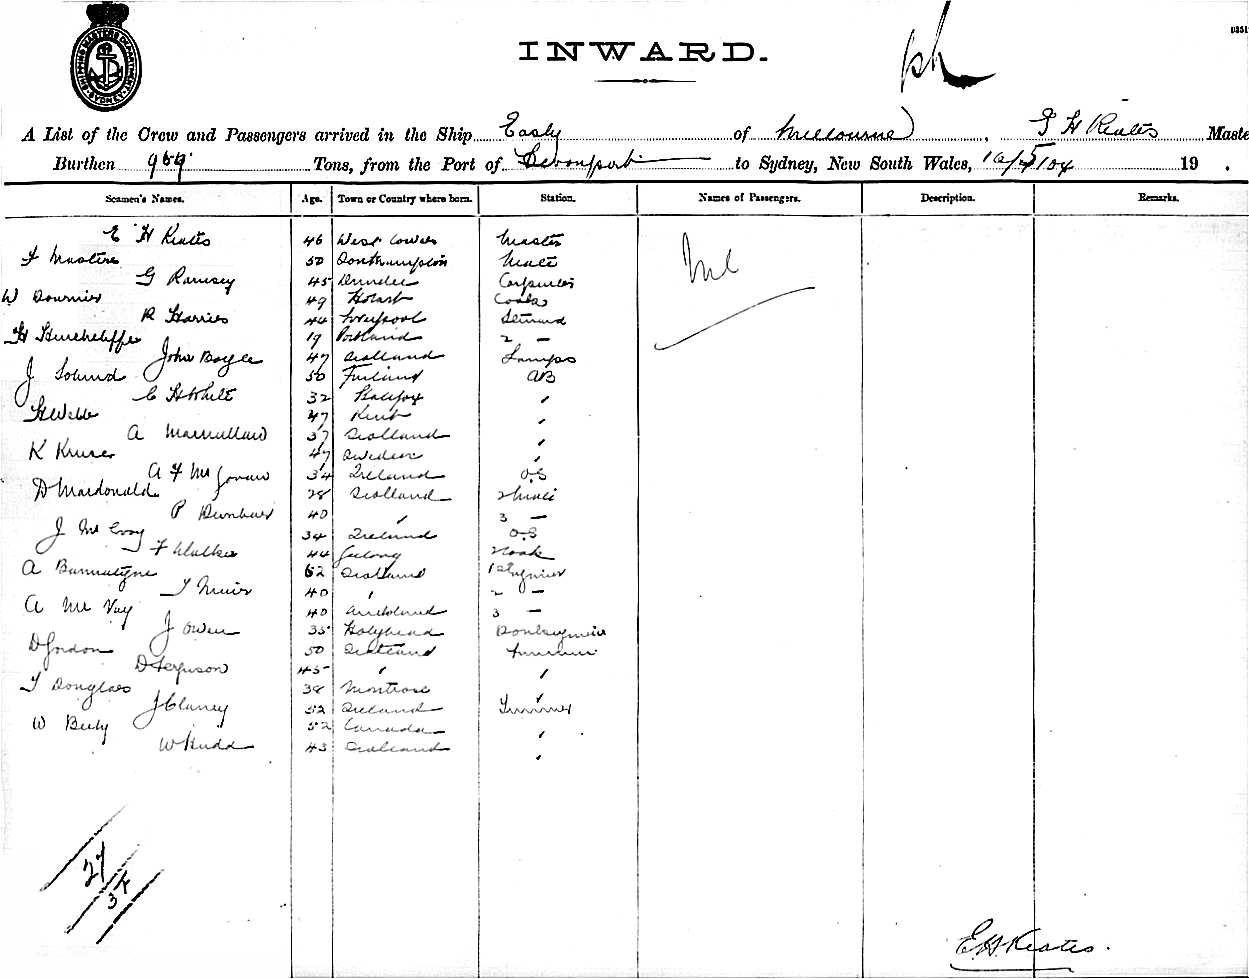 SHIPPING MASTERS DEPARTMENT SYDNEY
INWARD.
A List of the Crew and Passengers arrived in the Ship Easby of Melbourne, E H Keates Maste
Burthen 969 Tons, from the Port of Devonport to Sydney, New South Wales, 04 19 .
Seamen's Names. Age. Town or Country where born. Station. Names of Passengers. Description. Remarks.
E H Keates 46 West Cowes Master
F Masters 50 Southampton Mate
G Ramsey 45 Dundee Carpenter
W 49 Hobart Cook
R Harries 44 Liverpool Steward
H Hinchcliffe 19 Portland 2 —
John Boyle 47 Scotland Lamps
J 50 Finland AB
C H White 32 Halifax "
H Webb 47 Kent "
A 37 Scotland "
K Kruser 47 Sweden "
A F 34 Ireland O.S
D Macdonald 28 Scotland 2 Mate
P 40 " 3 —
J Mc Evoy 34 Ireland O.S
F Walker 44 Geelong 2 Cook
A Bannatyne 52 Scotland 1 Engineer
T Muir 40 " 2 —
A Mc Vey 40 3 —
J Owen 35 Holyhead Donkeyman
D Gordon 50 Scotland Fireman
D Ferguson 45 " "
T Douglass 38 Montrose "
J Clancy 52 Ireland Trimmer
W 52 Canada "
W Rudd 43 Scotland "
27
E.H. Keates.